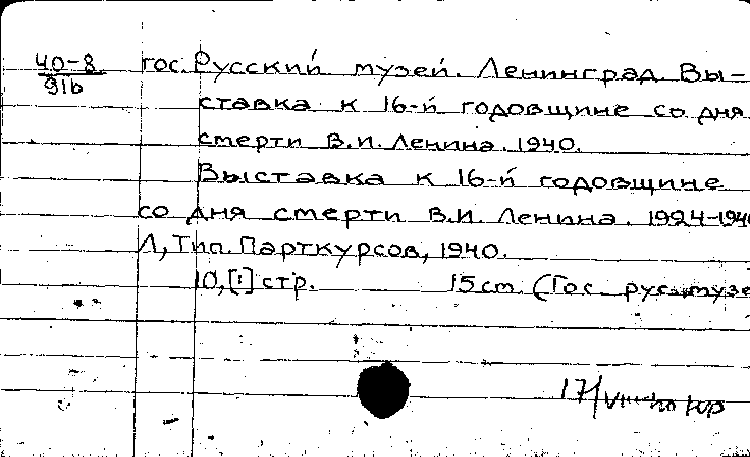 40-8
91b
гос. Русский музей. Ленинград. Вы-
ставка к 16-й годовщине со дня
смерти В.И. Ленина. 1940.
Выставка к 16-й годовщине
со дня смерти В.И. Ленина. 1924-194
Л, Тип. Парткурсов, 1940.
10, [1] стр. 15 cm. (Гос. рус. музе
17/VIII